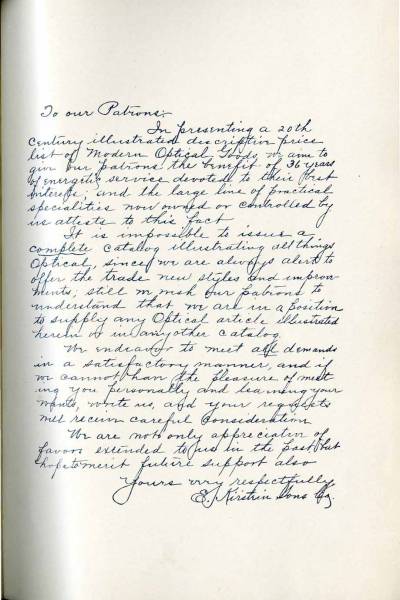 To our Patrons:-
In presenting a 20th
Century illustrated descriptive price
list of Modern Optical Goods we aim to
give our patrons the benefit of 36 years
of energetic service devoted to their best
interests, and the large line of practical
specialties now owned or controlled by
us attests to this fact
It is impossible to issue a
complete catalog illustrating all things
Optical, since we are always alert to
offer the trade new styles and improve-
ments; still we wish our patrons to
understand that we are in a position
to supply any Optical article illustrated
herein or in any other catalog
We endeavor to meet all demands
in a satisfactory manner, and if
we cannot have the pleasure of meet
ing you personally and learning your
wants, write us, and your requests
will receive careful consideration
We are not only appreciative of
favors extended to us in the past but
hope to merit future support also
Yours very respectfully
E. Kirstein Sons Co.